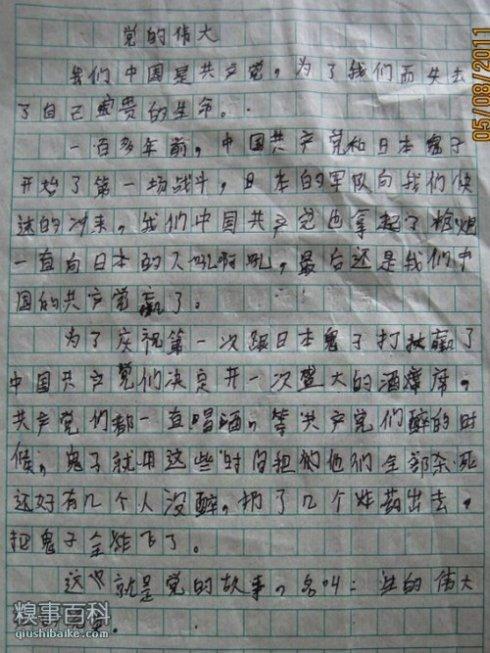 党的伟大
我们中国是共产党，为了我们而失去
了自己宝贵的生命。
一百多年前，中国共产党和日本鬼子
开始了第一场战斗，日本的军队向我们快
速的冲来，我们中国共产党也拿起了枪炮
一直向日本的人吼啊吼，最后还是我们中
国的共产党赢了。
为了庆祝第一次跟日本鬼子打扙赢了
中国共产党们决定开一次盛大的酒席，
共产党们都一直喝酒，等共产党们醉的时
候，鬼子就用这些时间把他们全部杀死
还好有几个人没醉，扔了几个炸药出去，
把鬼子全炸飞了。
这也就是党的故事，名叫：党的伟大
05/08/2011
糗事百科
qiushibaike.com